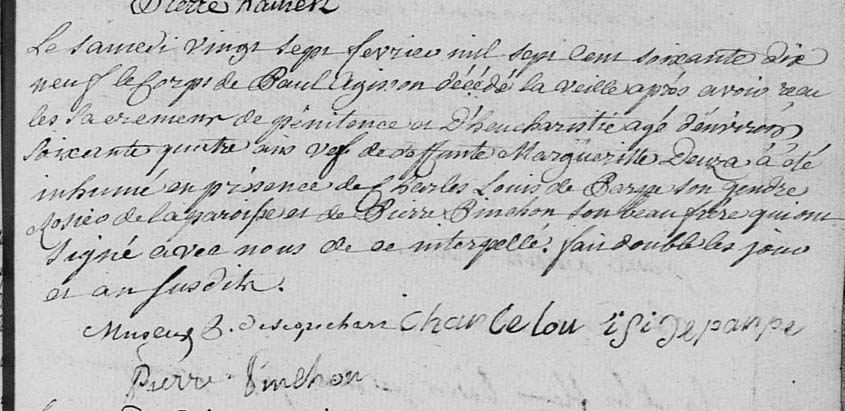 Pierre
Le samedi vingt sept fevrier mil sept cent soixante dix
neuf le Corps de Paul agisson décédé la veille après avoir recu
les sacremens de pénitence et D'heucharistie agé d'environ
soixante quatre ans vef de deffunte Margueritte Deuza à été
inhumé en présence de Charles Louis de Parpe son gendre
de la paroisse et de Pierre Pinchon son beau frere qui ont
signé avec nous de ce interpellés, fait double les jour
et an susdits.
Charle lou depappe
Pierre Pinchon